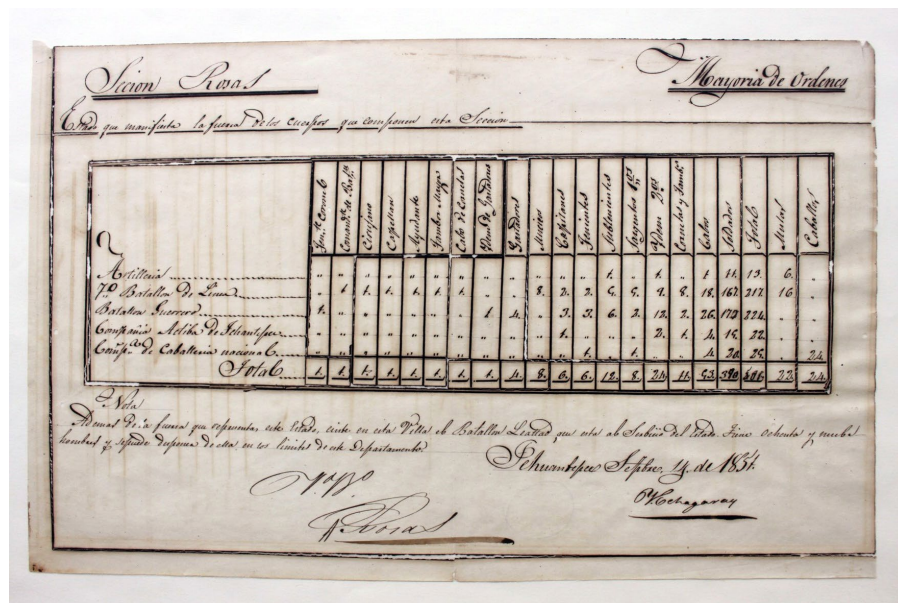 Seccion Rosas
Mayoria de Ordenes
Estado que manifiesta la fuerza de los cuerpos que componen esta Sección
Tente. Coronel Comandte. de Batn. Cirujano Capellan Ayudante Tambor Mayor Cabo de Cornetas Gastadores Musicos Capitanes Tenientes Subtenientes Sargentos 1os Idem 2os Cornetas y Tambs. Cabos Soldados Total Mulas Caballos
Artilleria " " " " " " " " " " " " 1. " 1. " 1. 11. 13. 6. "
7o. Batallon de Linea " 1. 1. 1. 1. 1. 1. " " 8. 2. 2. 5. 5. 9. 8. 18. 167. 217. 16 "
Batallon Guerrero 1. " " " " " " 1. 4. " 3. 3. 6. 2. 12. 2. 26. 173. 224. " "
Compañia Activa de Tehantepec " " " " " " " " " " 1. " " " 2. 1. 4. 19. 22. " "
Compa. de Caballeria nacional " " " " " " " " " " " 1. " 1. " " 4. 20. 25. " 24.
Total 1. 1. 1. 1. 1. 1. 1. 1. 4. 8. 6. 6. 12. 8. 24. 11. 53. 390. 501. 22. 24.
Nota
Ademas de la fuerza que representa este Estado, existe en esta Villa el Batallon Lealtad que esta al Servicio del Estado, tiene ochenta y nueve
hombres y se puede disponer de ella en los limites de este Departamento.
Tehuantepec Sepbre. 14. de 1851.
Vo. Bo.
Echagaray
Rosas